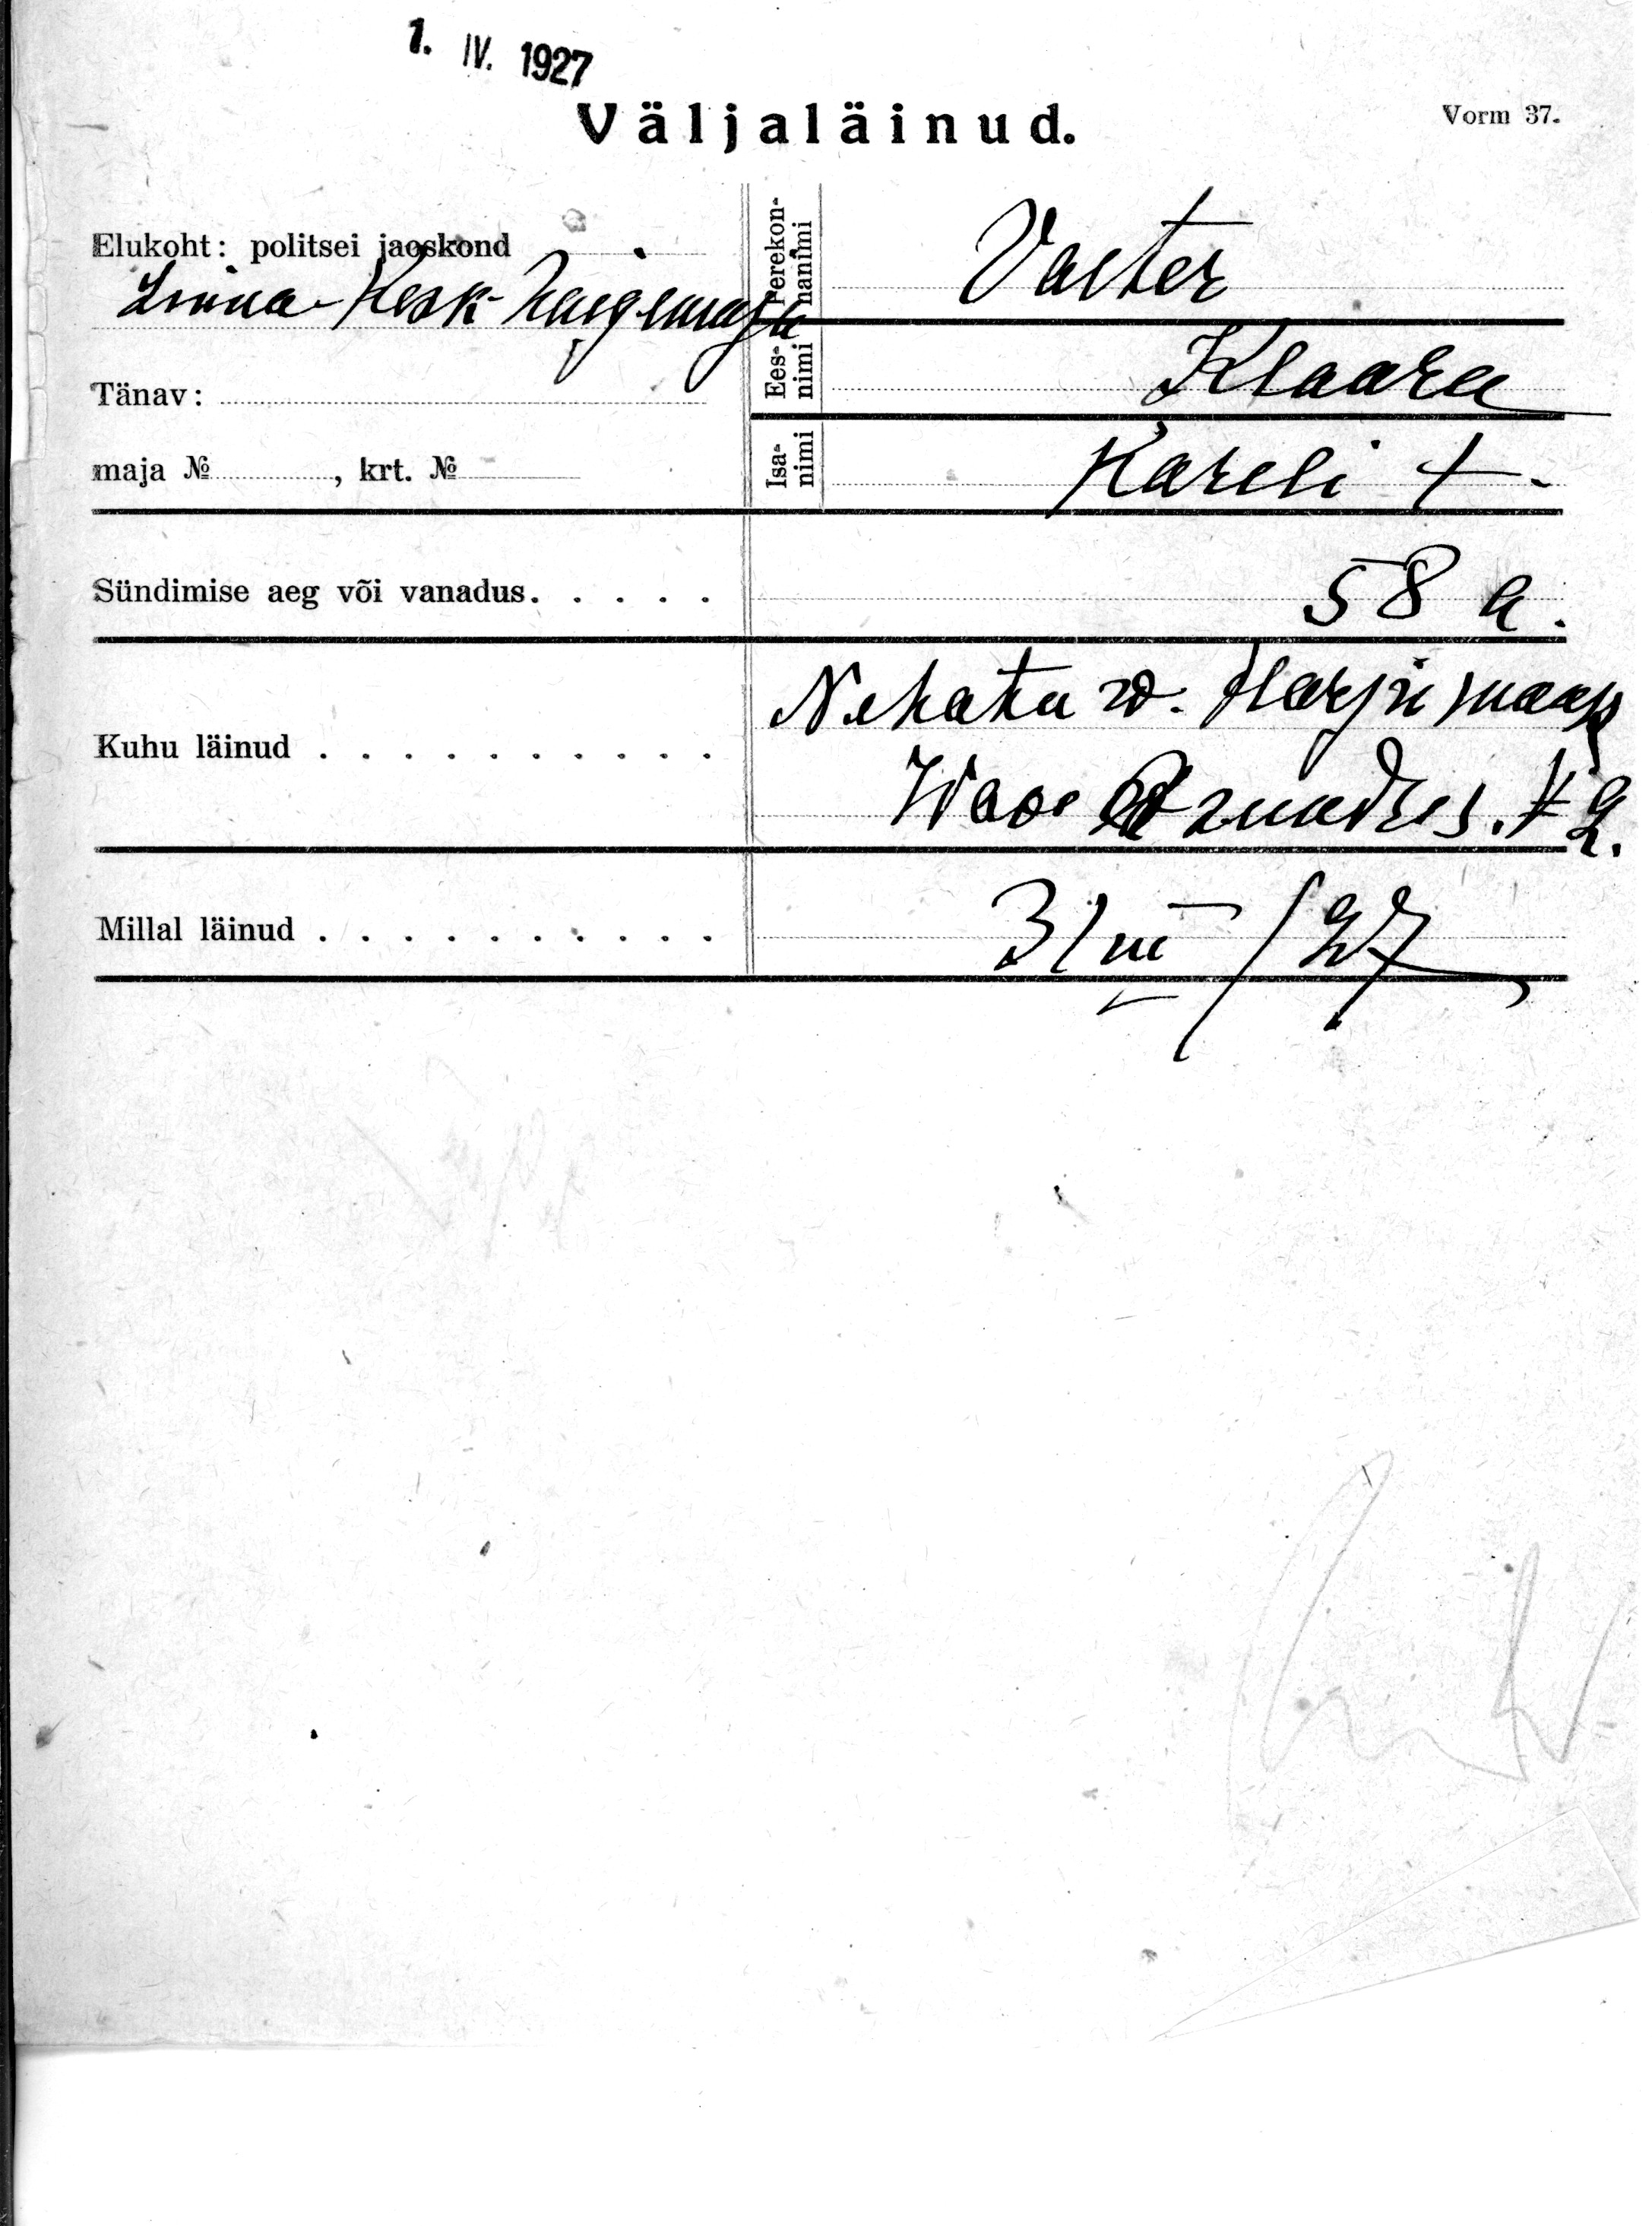 1. IV. 1927
Väljaläinud.
Vorm 37.
Elukoht: politsei jaoskond
Linna-Kesk-haigemaja
Tänav:
maja №, krt. №
Perekon-
nanimi
Vaeter
Ees-
nimi
Klaara
Isa-
nimi
Kareli +
Sündimise aeg või vanadus.
58 a.
Kuhu läinud
Nehatu w. Harju maak
Wao
Millal läinud
31 III / 27